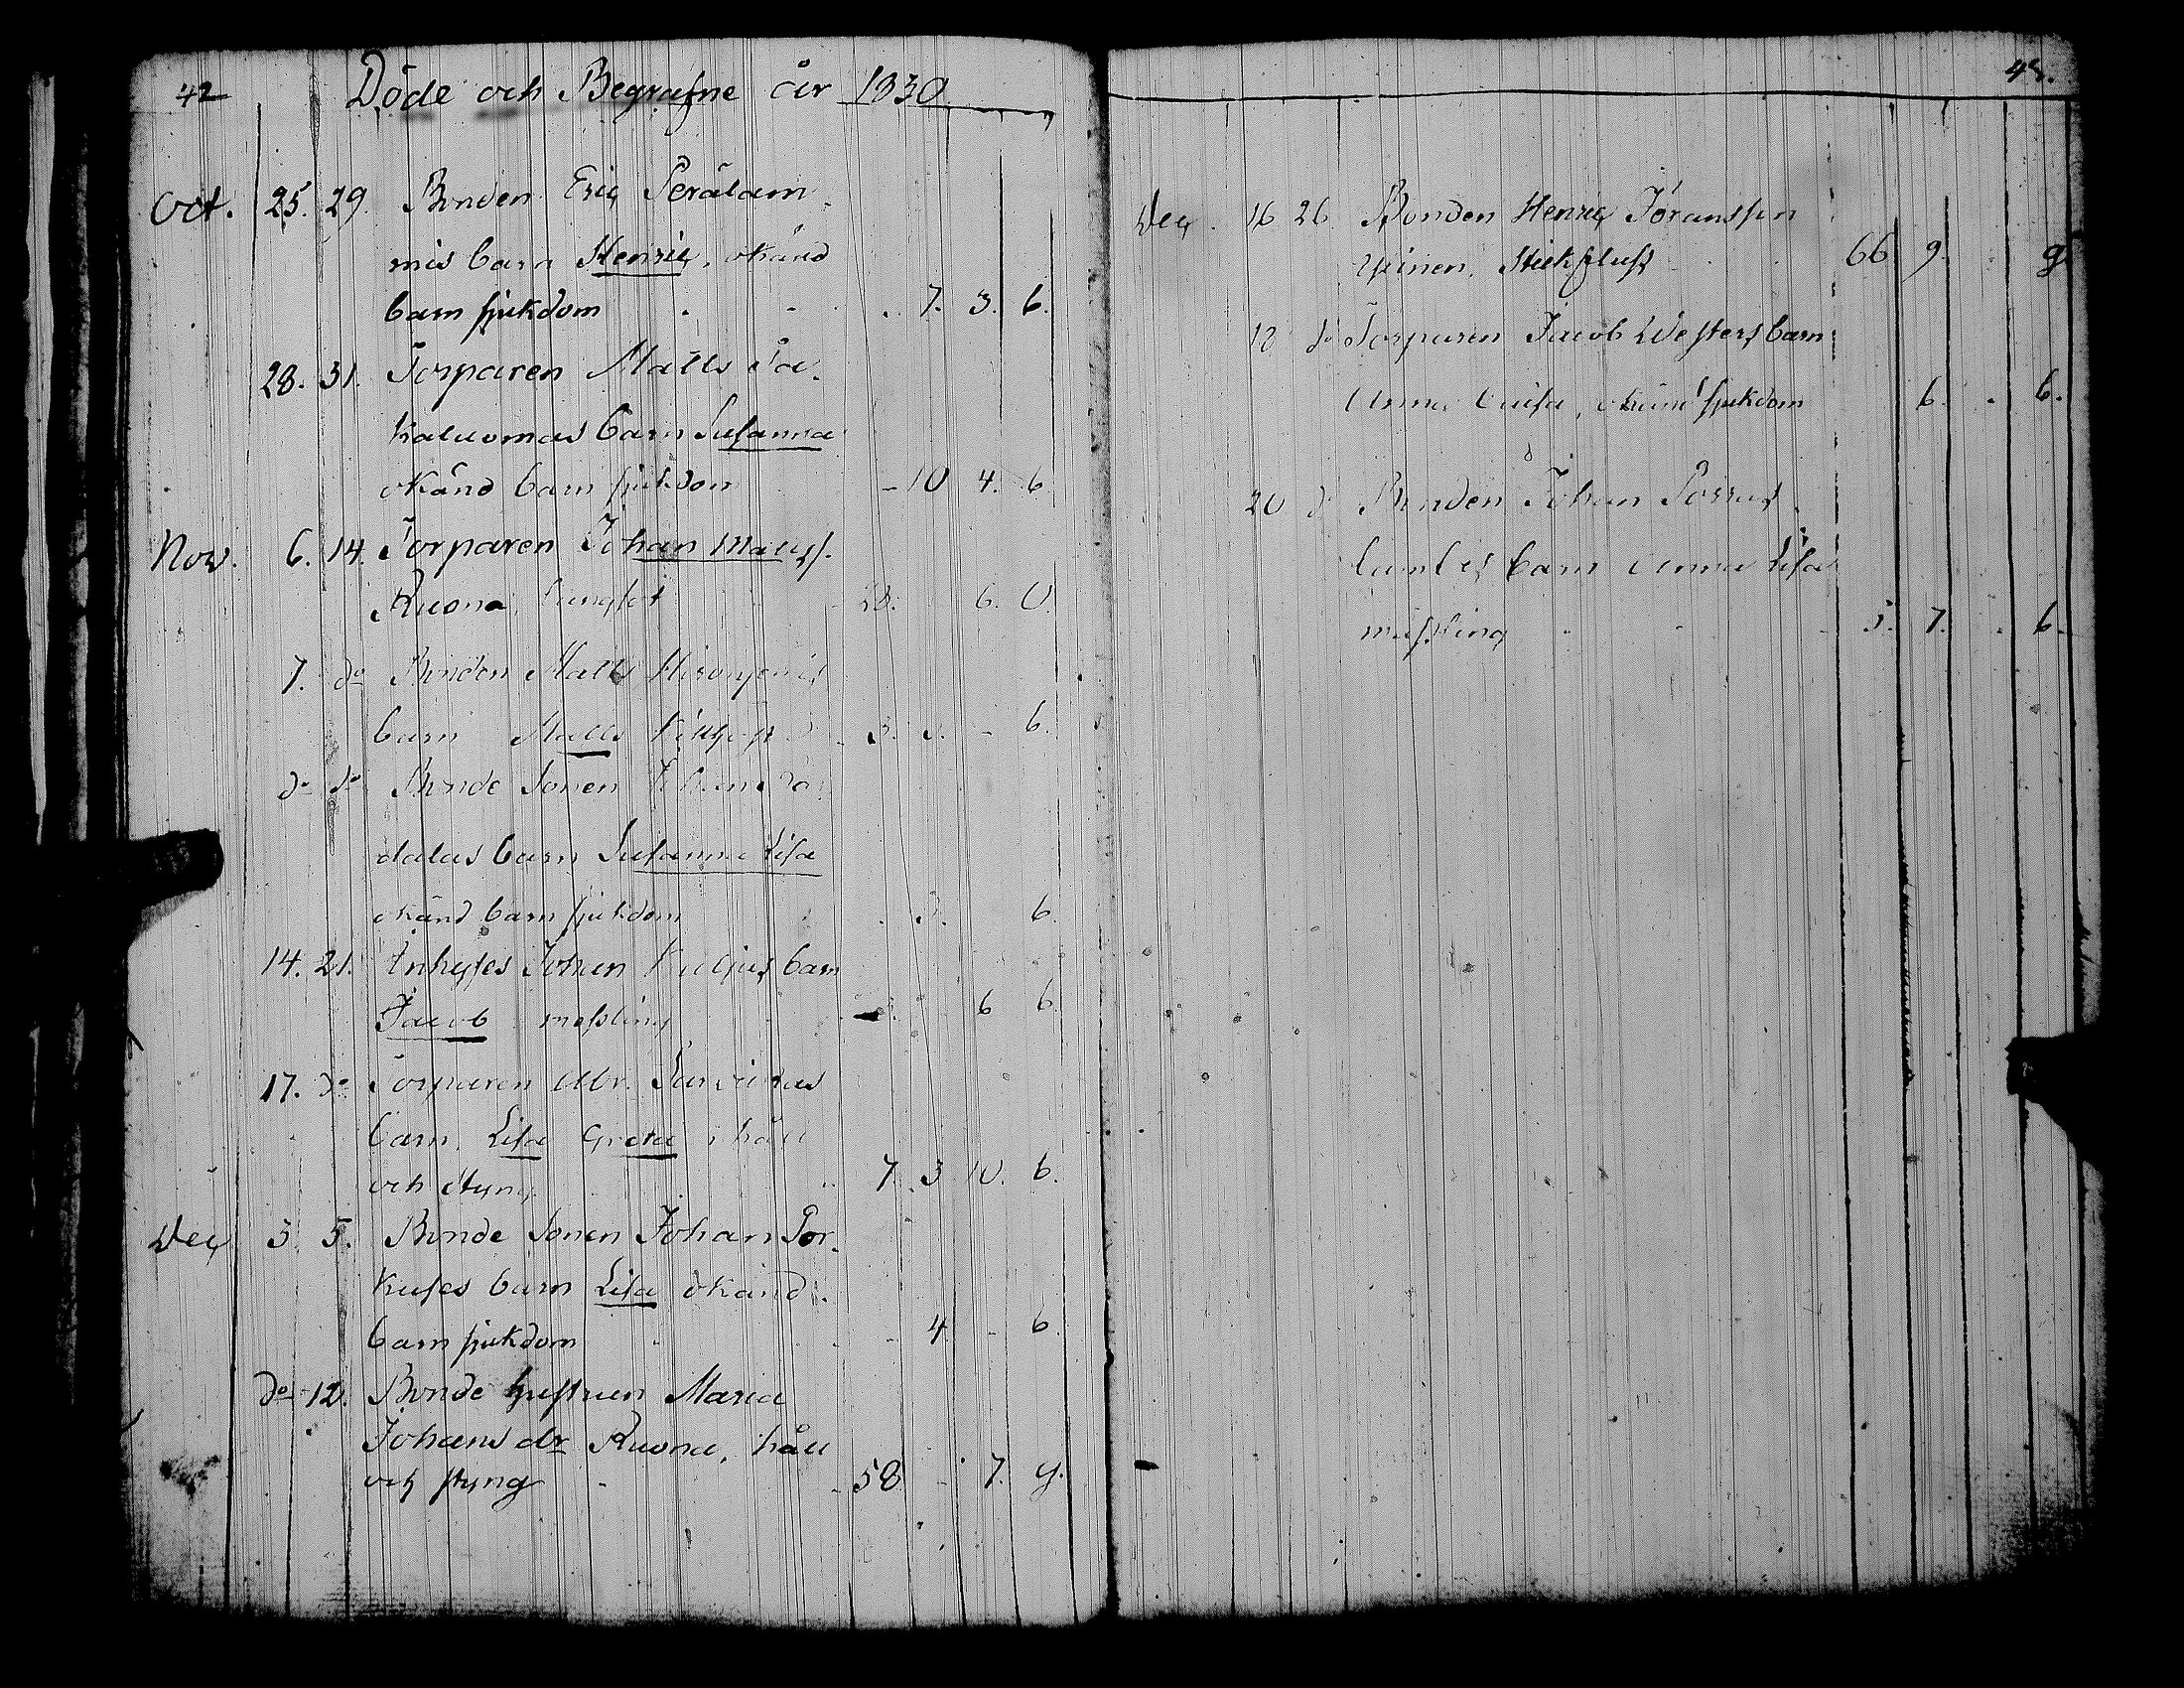 42
Döde och Begrafne år 1830
Oct. 25. 29. Bonden Eric Perälam
mis barn Henric, okänd
barn sjukdom 7. 3. 6.
28. 31. Torparen Matts Sa
kaluomas barn Susanna
okänd barn sjukdom 10 4. 6
Nov. 6. 14. Torparen Johan Matts s.
Ruona, lungsot 28. 6. 0.
7. do Bonden Matts
barn Matts 3. 6.
do do Bonde Sonen
dalas barn Susanna Lisa
okänd barn sjukdom 3. 6.
14. 21. Inhyses Johan barn
Jacob mässling 6 6
17. do Torparen Abr.
barn Lisa Greta håll
och styng 7 3 10. 6.
Dec 3 5. Bonde Sonen Johan Por
kuses barn Lisa okänd
barn sjukdom 4 6
do 12. Bonde hustrun Maria
Johans dr Ruona, håll
och styng 58 7. g.
43.
Dec. 16 26 Bonden Henric Jöransson
Stickfluss 66 9. g
18 do Torparen Jacob Westers barn
Anna Caisa, okänd sjukdom 6. 6.
20 do Bonden Johan Porras
barn Anna Lisa
mässling 3. 7. 6.